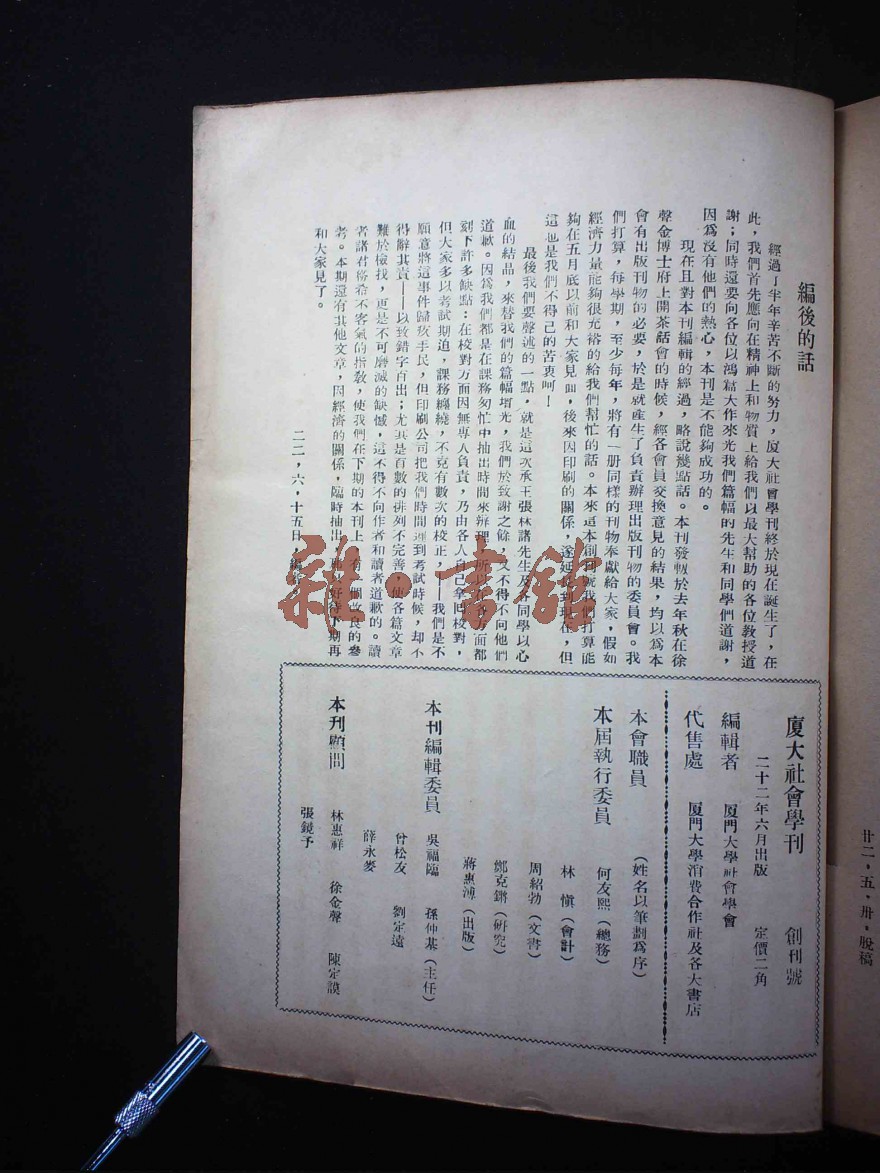 編後的話
經過了半年辛苦不斷的努力，廈大社會學刊終於現在誕生了，在
此，我們首先應向在精神上和物質上給我們以最大幫助的各位教授道
謝；同時還要向各位以鴻篇大作來光我們篇幅的先生和同學們道謝，
因爲沒有他們的熱心，本刊是不能夠成功的。
現在且對本刊編輯的經過，略說幾點話。本刊發軔於去年秋在徐
聲金博士府上開茶話會的時候，經各會員交換意見的結果，均以爲本
會有出版刊物的必要，於是就產生了負責辦理出版刊物的委員會。我
們打算，每學期，至少每年，將有一册同樣的刊物奉獻給大家，假如
經濟力量能夠很充裕的給我們幫忙的話。本來這本創刊號我們打算能
夠在五月底以前和大家見面，後來因印刷的關係，遂延長到現在，但
這也是我們不得己的苦衷呵！
最後我們要聲述的一點，就是這次承王張林諸先生及同學以心
血的結晶，來替我們的篇幅增光，我們於致謝之餘，又不得不向他們
道歉。因爲我們都是在課務匆忙中抽出時間來辦理，所以在各方面都
刻下許多缺點：在校對方面因無專人負責，乃由各人自己拿回校對，
但大家多以考試期迫，課務纏繞，不克有數次的校正，——我們是不
願意將這事件歸孩手民，但印刷公司把我們時間遲到考試時候，却不
得辭其責——以致錯字百出；尤其是百數的排列不完善，使各篇文章
難於檢找，更是不可磨滅的缺憾，這不得不向作者和讀者道歉的。讀
者諸君倘希不客氣的指教，使我們在下期的本刊上，有一個改良的參
考。本期還有其他文章，因經濟的關係，臨時抽出，好待下期再
和大家見了。
二二，六，十五日，編者
廈大社會學刊 創刊號
二十二年六月出版 定價二角
編輯者 厦門大學社會學會
代售處 厦門大學消費合作社及各大書店
本會職員 （姓名以筆劃爲序）
本屆執行委員 何友熙（總務）
林愼（會計）
周紹勃（文書）
鄭克鏘（研究）
蔣惠溥（出版）
本刊編輯委員 吳福臨 孫仲基（主任）
曾松友 劉定遠
薛永麥
本刊顧問 林惠祥 徐金聲 陳定謨
張鏡予
廿二，五，卅，脫稿
雜·書館